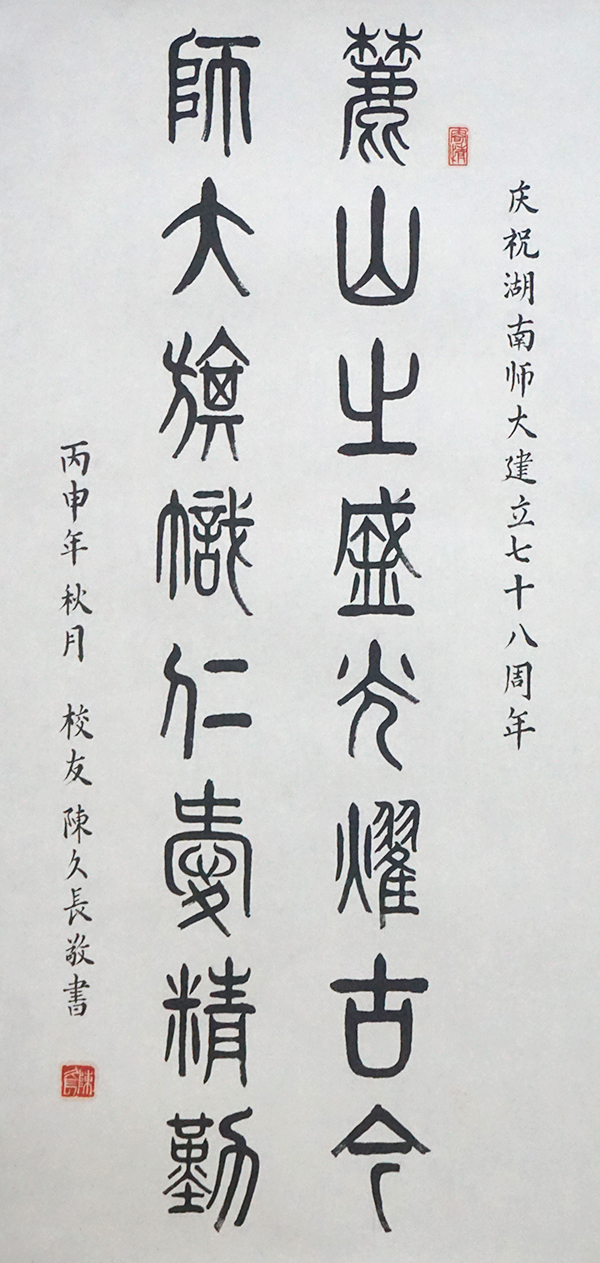 庆祝湖南师大建立七十八周年
麓山之盛光耀古今
師大旗幟仁愛精勤
丙申年秋月 校友 陳久長敬書